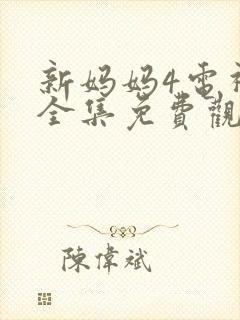 新妈妈4电视
全集免費觀
陳偉斌